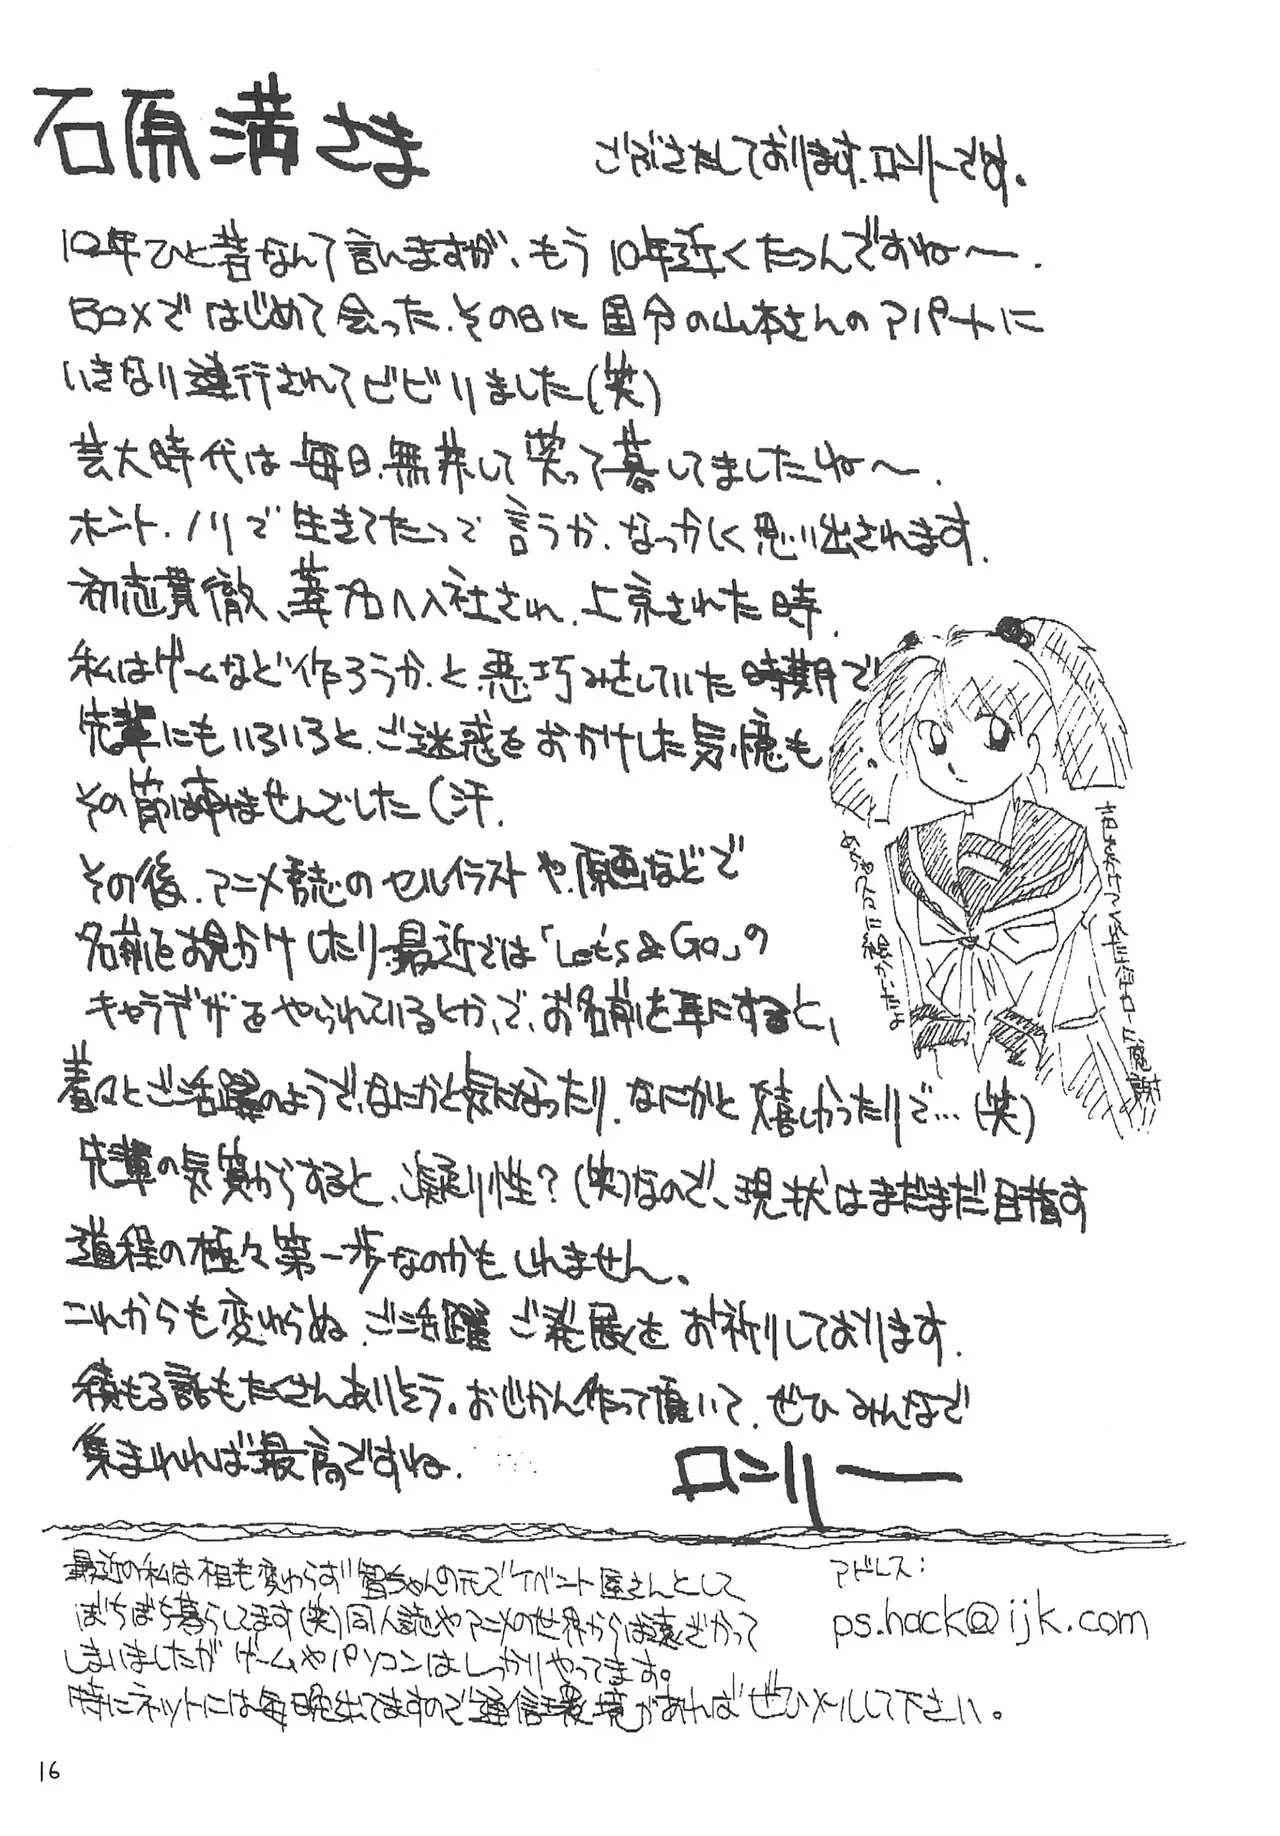 石原満さま
ごぶさたしております、ロンリーです。
10年ひと昔なんて言いますが、もう10年近くたつんですね〜.
BOXではじめて会った、その日に国分の山本さんのアパートに
いきなり連行されてビビりました(笑)
芸大時代は毎日、無茶して笑って暮してましたね〜.
ホント、ノリで生きてたって言うか、なつかしく思い出されます.
初志貫徹、葦プロへ入社され、上京された時、
私はゲームなど作ろうか、と、悪巧みをしていた時期で
先輩にもいろいろと、ご迷惑をおかけした気憶も、
その節はすみませんでした(汗.
その後、アニメ誌のセルイラストや、原画などで
名前をお見かけしたり、最近では「Let's & Go」の
キャラデザをやられているとか、で、お名前を耳にすると、
着々とご活躍のようで、なにかと気になったり、なにかと嬉しかったりで…(笑)
先輩の気質からすると、凝り性?(笑)なので、現状はまだまだ目指す
道程の極々第一歩なのかもしれません、
これからも変わらぬ、ご活躍ご発展をお祈りしております.
積もる話もたくさんありそう。おじかん作って頂いて、ぜひみんなで
集まれれば最高ですね.
ロンリー
最近の私は相も変わらず
の元でイベント屋さんとして
ぼちぼち暮らしてます(笑)同人誌やアニメの世界からは遠ざかって
しまいましたがゲームやパソコンはしっかりやってます。
特にネットには毎晩出てますので通信環境があればぜひメールして下さい。
アドレス:
ps.hack@ijk.com
16